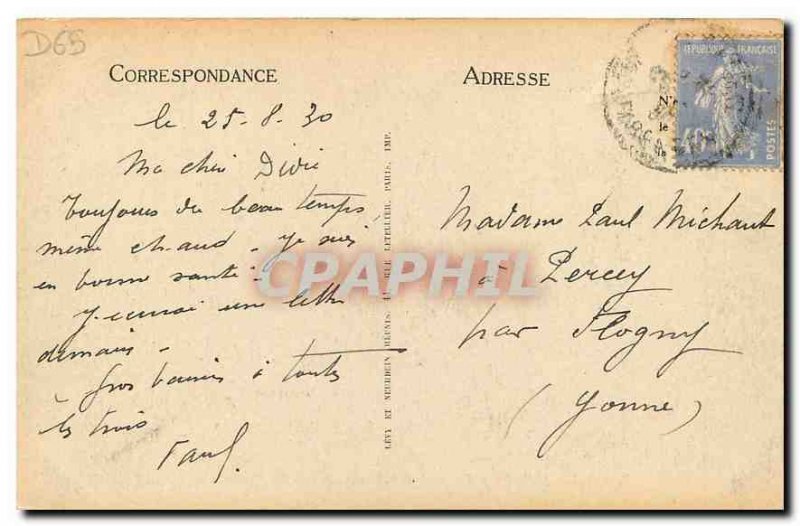 D65
CORRESPONDANCE
le 25-8-30
Ma chère Didie
Toujours du beau temps
même chaud. Je suis
en bonne santé.
J'écrirai une lettre
demain.
Gros baisers à toutes
les trois
Paul.
LÉVY ET NEURDEIN RÉUNIS, 44, RUE LETELLIER, PARIS, IMP.
ADRESSE
RÉPUBLIQUE FRANÇAISE
POSTES
N'
le
Madame Paul Michaut
à Percey
par Flogny
(Yonne)
CPAPHIL